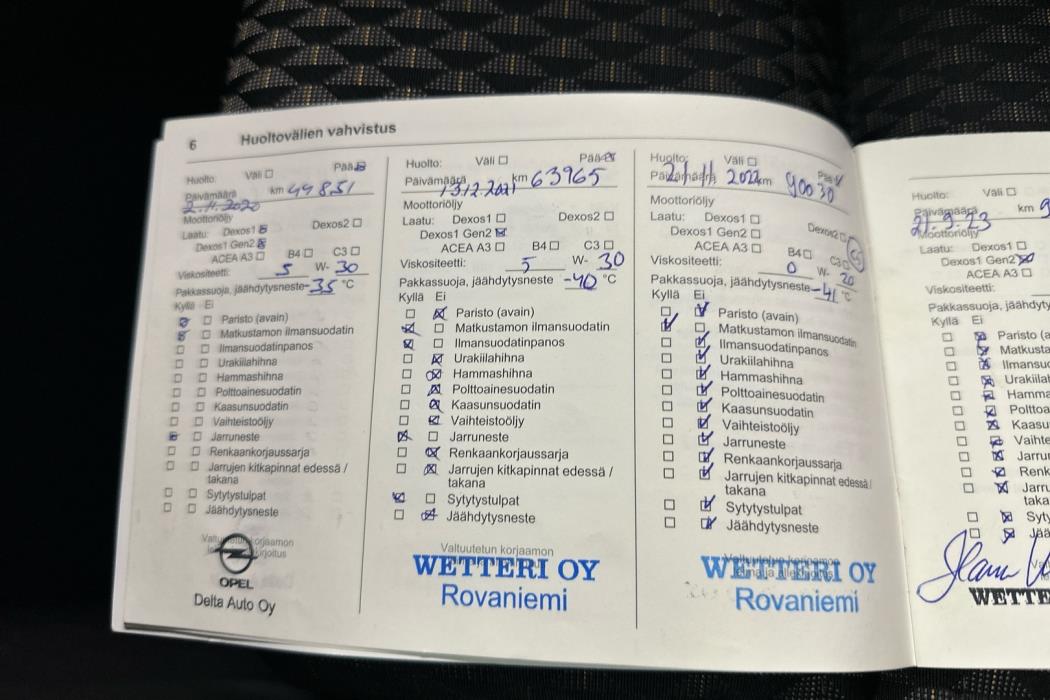 6 Huoltovälien vahvistus
Huolto: Väli Pää
Päivämäärä km 49851
2.11.2020
Moottoriöljy
Laatu: Dexos1 Dexos2
Dexos1 Gen2
ACEA A3 B4 C3
Viskositeetti: 5 W- 30
Pakkassuoja, jäähdytysneste -35 °C
Kyllä Ei
Paristo (avain)
Matkustamon ilmansuodatin
Ilmansuodatinpanos
Urakiilahihna
Hammashihna
Polttoainesuodatin
Kaasunsuodatin
Vaihteistoöljy
Jarruneste
Renkaankorjaussarja
Jarrujen kitkapinnat edessä /
takana
Sytytystulpat
Jäähdytysneste
OPEL
Delta Auto Oy
Huolto: Väli Pää
Päivämäärä 13.12.2021 km 63965
Moottoriöljy
Laatu: Dexos1 Dexos2
Dexos1 Gen2
ACEA A3 B4 C3
Viskositeetti: 5 W- 30
Pakkassuoja, jäähdytysneste -40 °C
Kyllä Ei
Paristo (avain)
Matkustamon ilmansuodatin
Ilmansuodatinpanos
Urakiilahihna
Hammashihna
Polttoainesuodatin
Kaasunsuodatin
Vaihteistoöljy
Jarruneste
Renkaankorjaussarja
Jarrujen kitkapinnat edessä /
takana
Sytytystulpat
Jäähdytysneste
Valtuutetun korjaamon
WETTERI OY
Rovaniemi
Huolto: Väli Pää
Päivämäärä 2022 km 90030
Moottoriöljy
Laatu: Dexos1 Dexos2
Dexos1 Gen2
ACEA A3 B4 C3
Viskositeetti: 0 W- 20
Pakkassuoja, jäähdytysneste -41 °C
Kyllä Ei
Paristo (avain)
Matkustamon ilmansuodatin
Ilmansuodatinpanos
Urakiilahihna
Hammashihna
Polttoainesuodatin
Kaasunsuodatin
Vaihteistoöljy
Jarruneste
Renkaankorjaussarja
Jarrujen kitkapinnat edessä /
takana
Sytytystulpat
Jäähdytysneste
WETTERI OY
Rovaniemi
Huolto: Väli
Päivämäärä km 9
21.9.23
Moottoriöljy
Laatu: Dexos1
Dexos1 Gen2
ACEA A3
Viskositeetti:
Pakkassuoja, jäähdy
Kyllä Ei
Paristo (a
Matkusta
Ilmansuo
Urakiilah
Hamma
Polttoa
Kaasu
Vaihte
Jarru
Renk
Jarru
taka
Syty
Jää
WETTE